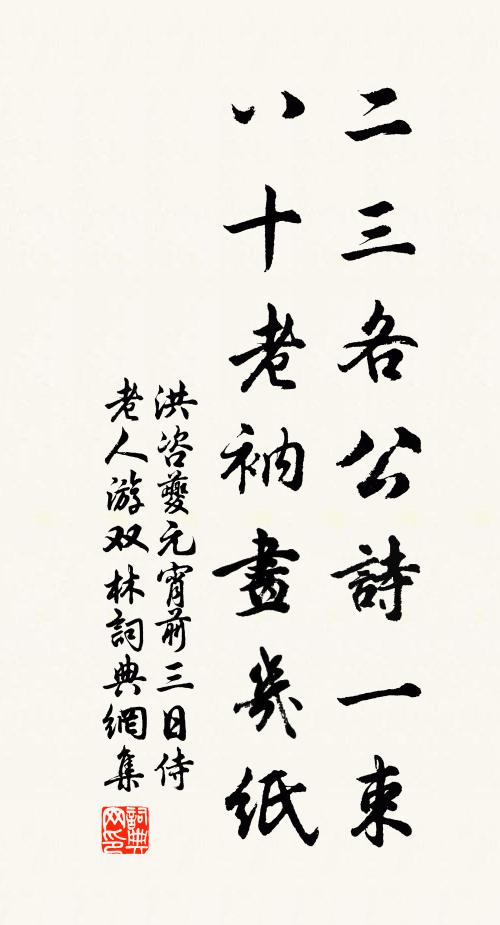 二三各公詩一束
八十老衲畫幾紙
洪咨夔元宵前三日侍
老人游双林詞典網集
詞典网印